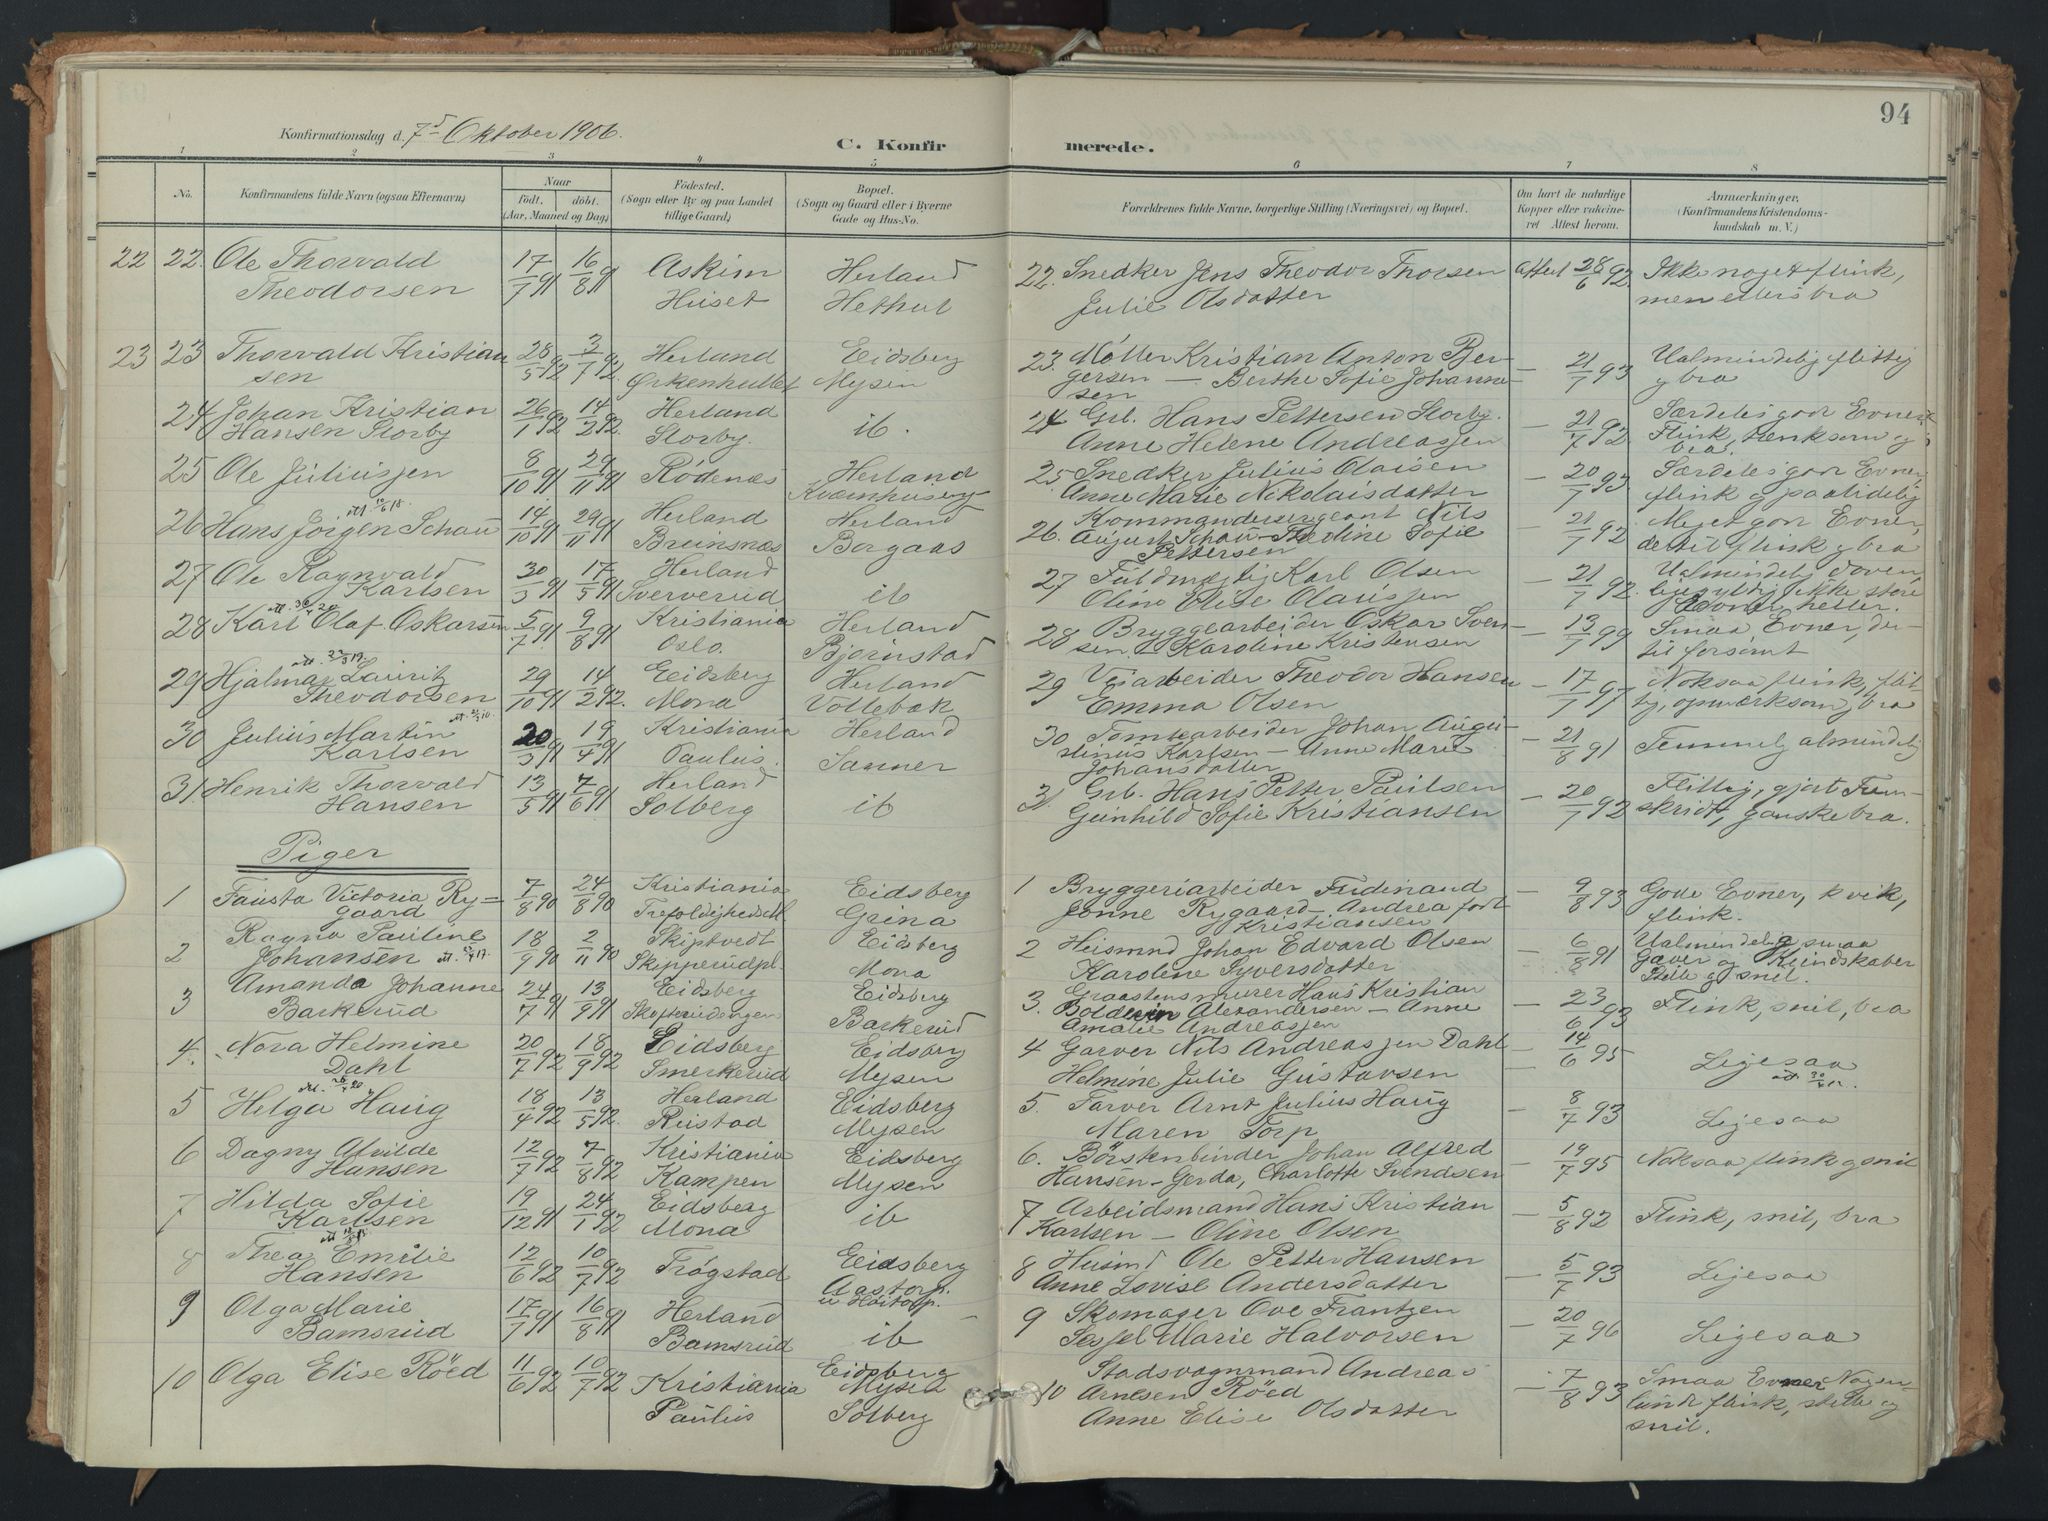 94
Konfirmationsdag d. 7de Oktober 1906.
C. Konfirmerede.
1 2 3 4 5 6 7 8
No.
Konfirmandens fulde Navn (ogsaa Efternavn)
Naar
födt. döbt.
(Aar, Maaned og Dag)
Födested.
(Sogn eller By og paa Landet
tillige Gaard)
Bopæl.
(Sogn og Gaard eller i Byerne
Gade og Hus-No.
Forældrenes fulde Navne, borgerlige Stilling (Næringsvei) og Bopæl.
Om havt de naturlige
Kopper eller vakcine-
ret Attest herom.
Anmærkninger.
(Konfirmandens Kristendoms-
kundskab m. V.)
22 22. Ole Thorvald 17/7 91 16/8 91 Askim Herland 22. Snedker Jens Theodor Thorsen Attest 28/6 92 Ikke noget flink,
Theodorsen Huset Hethul Julie Olsdatter men ellers bra
23 23 Thorvald Kristian 28/5 92 3/7 92. Herland Eidsberg 23. Møller Kristian Anton Ber- — 21/7 93 Ualmindelig flittig
sen Ørkenhullet Mysen gersen — Berthe Sofie Johanne- g bra
sen
24 Johan Kristian 26/1 92 14/2 92. Herland ib. 24 Grb. Hans Pettersen Storby. — 21/7 92 Særdeles god Evner,
Hansen Storby Storby. Anne Helene Andreassen Flink, tænksom g
bra.
25 Ole Juliussen 8/10 91 29/11 91 Rödenæs Herland 25 Snedker Julius Olaisen — 20/7 93 Særdeles god Evner,
Kværnhuseng Anne Marie Nikolaisdatter flink g paalidelig
26 Hans Jörgen Schau att. 10/6 18. 14/10 91 29/11 91 Herland Herland 26. Kommandersergeant Nils — 21/7 92 Meget god Evner,
Breinsnæs Borgaas August Schau - Thedine Sofie dertil flink g bra
Pettersen
27 Ole Ragnvald 30/3 91 17/5 91 Herland ib 27 Fuldmægtig Karl Olsen — 21/7 92. Ualmindelig doven,
Karlsen Sververud Oline Elise Olaussen ikke store
Evner heller.
28 Karl Olaf Oskarsen 5/7 91 9/8 91 Kristiania Herland 28 Bryggearbeider Oskar Sven- — 13/7 99 Smaa Evner, der-
Oslo. Bjørnstad sen. - Karoline Kristensen til forsømt
29 Hjalmar Lauritz 29/10 91 14/2 92. Eidsberg Herland 29 Veiarbeider Theodor Hansen — 17/7 97 Noksaa flink, flit-
Theodorsen Mona Vollebæk Emma Olsen tig, opmærksom, bra
30 Julius Martin 20/3 91 19/4 91 Kristiania Herland 30 Tomtearbeider Johan Augu- — 21/8 91 Temmelig almindelig
Karlsen Paulus. Sanner stinus Karlsen — Anne Marie
Johansdatter
31 Henrik Thorvald 13/5 91 7/6 91 Herland ib 31. Grb. Hans Petter Paulsen — 20/7 92 Flittig, gjort Frem-
Hansen Solberg Gunhild Sofie Kristiansen skridt, ganske bra.
Piger
1 Fausta Victoria Ry- 7/8 90 24/8 90 Kristiania Eidsberg 1 Bryggeriarbeider Ferdinand — 9/8 93 Gode Evner, kvik,
gaard Trefoldighedsk. Grina Jonne Rygaard - Andrea født flink.
Kristiansen
2 Ragna Pauline 18/9 90 2/11 90 Skiptvedt Eidsberg 2 Husmnd Johan Edvard Olsen — 6/8 91 Ualmindelig smaa
Johansen Skipperudpl. Mona Karoline Syversdatter Gaver og Kundskaber
Stille g snil.
3 Amanda Johanne 24/7 91 13/9 91 Eidsberg Eidsberg 3. Graastensmurer Hans Kristian — 23/6 93 Flink, snil, bra
Barkerud Skofterudengen Barkerud Boldevin Alexandersen — Anne
Amalie Andreassen
4. Nora Helmine 20/7 92 18/9 92 Eidsberg Eidsberg 4 Garver Nils Andreassen Dahl — 14/6 95 Ligesaa
Dahl Smerkerud Mysen Helmine Julie Gustavsen
5 Helga Haug 18/4 92 13/5 92. Herland Eidsberg 5. Farver Arnt Julius Haug — 8/7 93 Ligesaa
Reistad Mysen Maren Torp
6 Dagny Alvilde 12/7 92 7/8 92 Kristiania Eidsberg 6. Börstenbinder Johan Alfred — 19/7 95 Noksaa flink g snil
Hansen Kampen Mysen Hansen - Gerda, Charlotte Svendsen
7 Hilda Sofie 19/12 91 24/1 92 Eidsberg ib 7 Arbeidsmand Hans Kristian — 5/8 92 Flink, snil, bra
Karlsen Mona Karlsen — Oline Olsen
8 Thea Emilie 12/6 92 10/7 92 Trøgstad Eidsberg 8 Husmd Ole Petter Hansen — 5/7 93 Ligesaa
Hansen Aastorp. Anne Lovise Andersdatter
u Høitorp.
9 Olga Marie 17/7 91 16/8 91 Herland ib 9 Skomager Ove Frantzen — 20/7 96 Ligesaa
Bamsrud Bamsrud Sessel Marie Halvorsen
10 Olga Elise Röed 11/6 92 10/7 92 Kristiania Eidsberg 10 Stadsvognmand Andreas — 7/8 93 Smaa Evner Nogen-
Paulus Mysen Arnesen Röed lunde flink, stille og
Solberg Anne Elise Olsdatter snil.